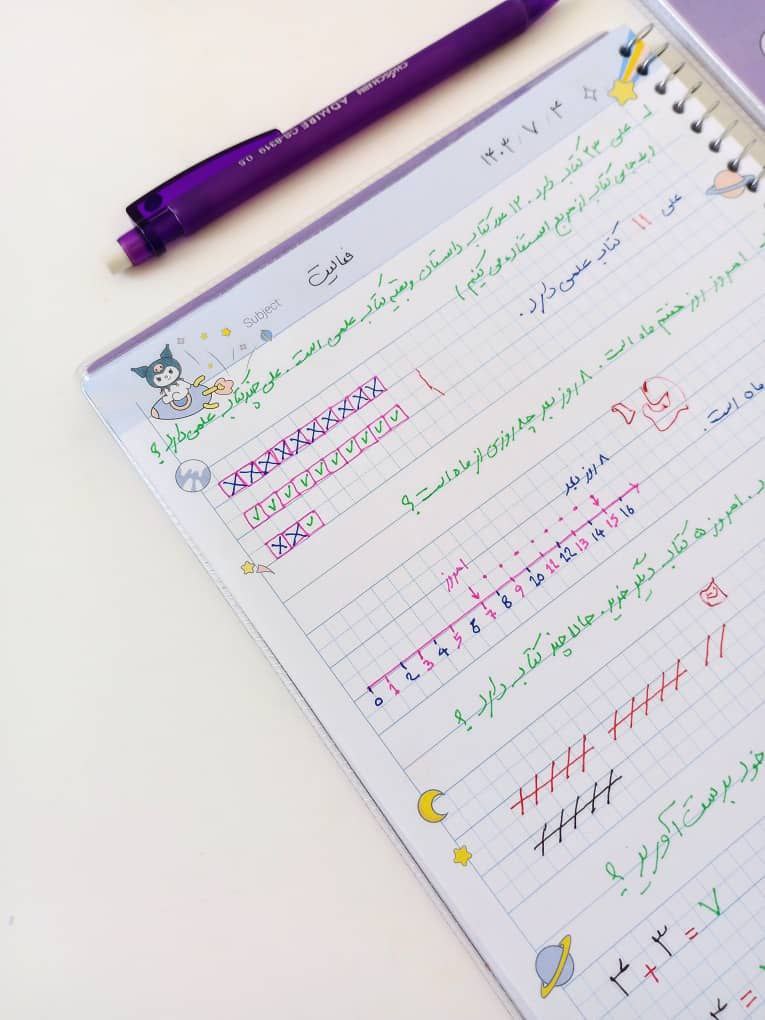 CHOSCHIM ADMIRE CS-8319 0.5
۱۴۰۳/۷/۴
Subject فعالیت
علی ۲۳ کتاب دارد. ۱۲ عدد کتاب داستان و بقیه کتاب علمی است. علی چند کتاب علمی دارد؟
(به جای کتاب از مربع استفاده می کنیم)
علی ۱۱ کتاب علمی دارد.
امروز روز هفتم ماه است. ۸ روز بعد چه روزی از ماه است؟
ماه است.
۸ روز بعد
امروز
0 1 2 3 4 5 6 7 8 9 10 11 12 13 14 15 16
امروز ۵ کتاب دیگر خرید. حالا چند کتاب دارد؟
خود بدست آورید؟
۴ + ۳ = ۷